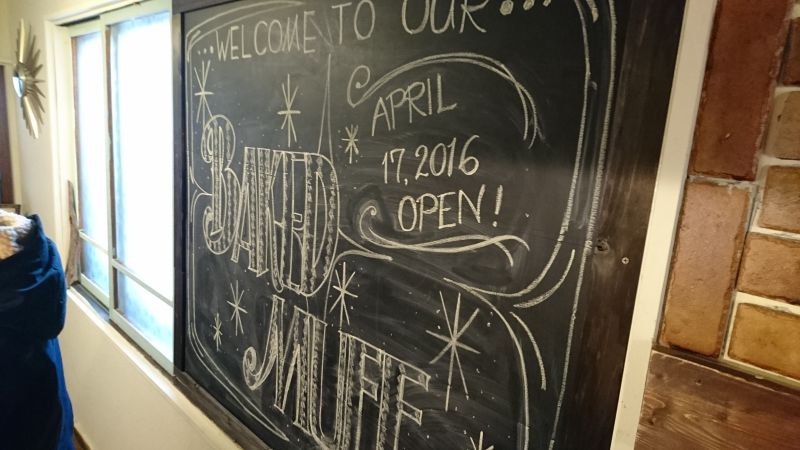 ...WELCOME TO OUR...
APRIL
17, 2016
OPEN!
BAKED
MUFF